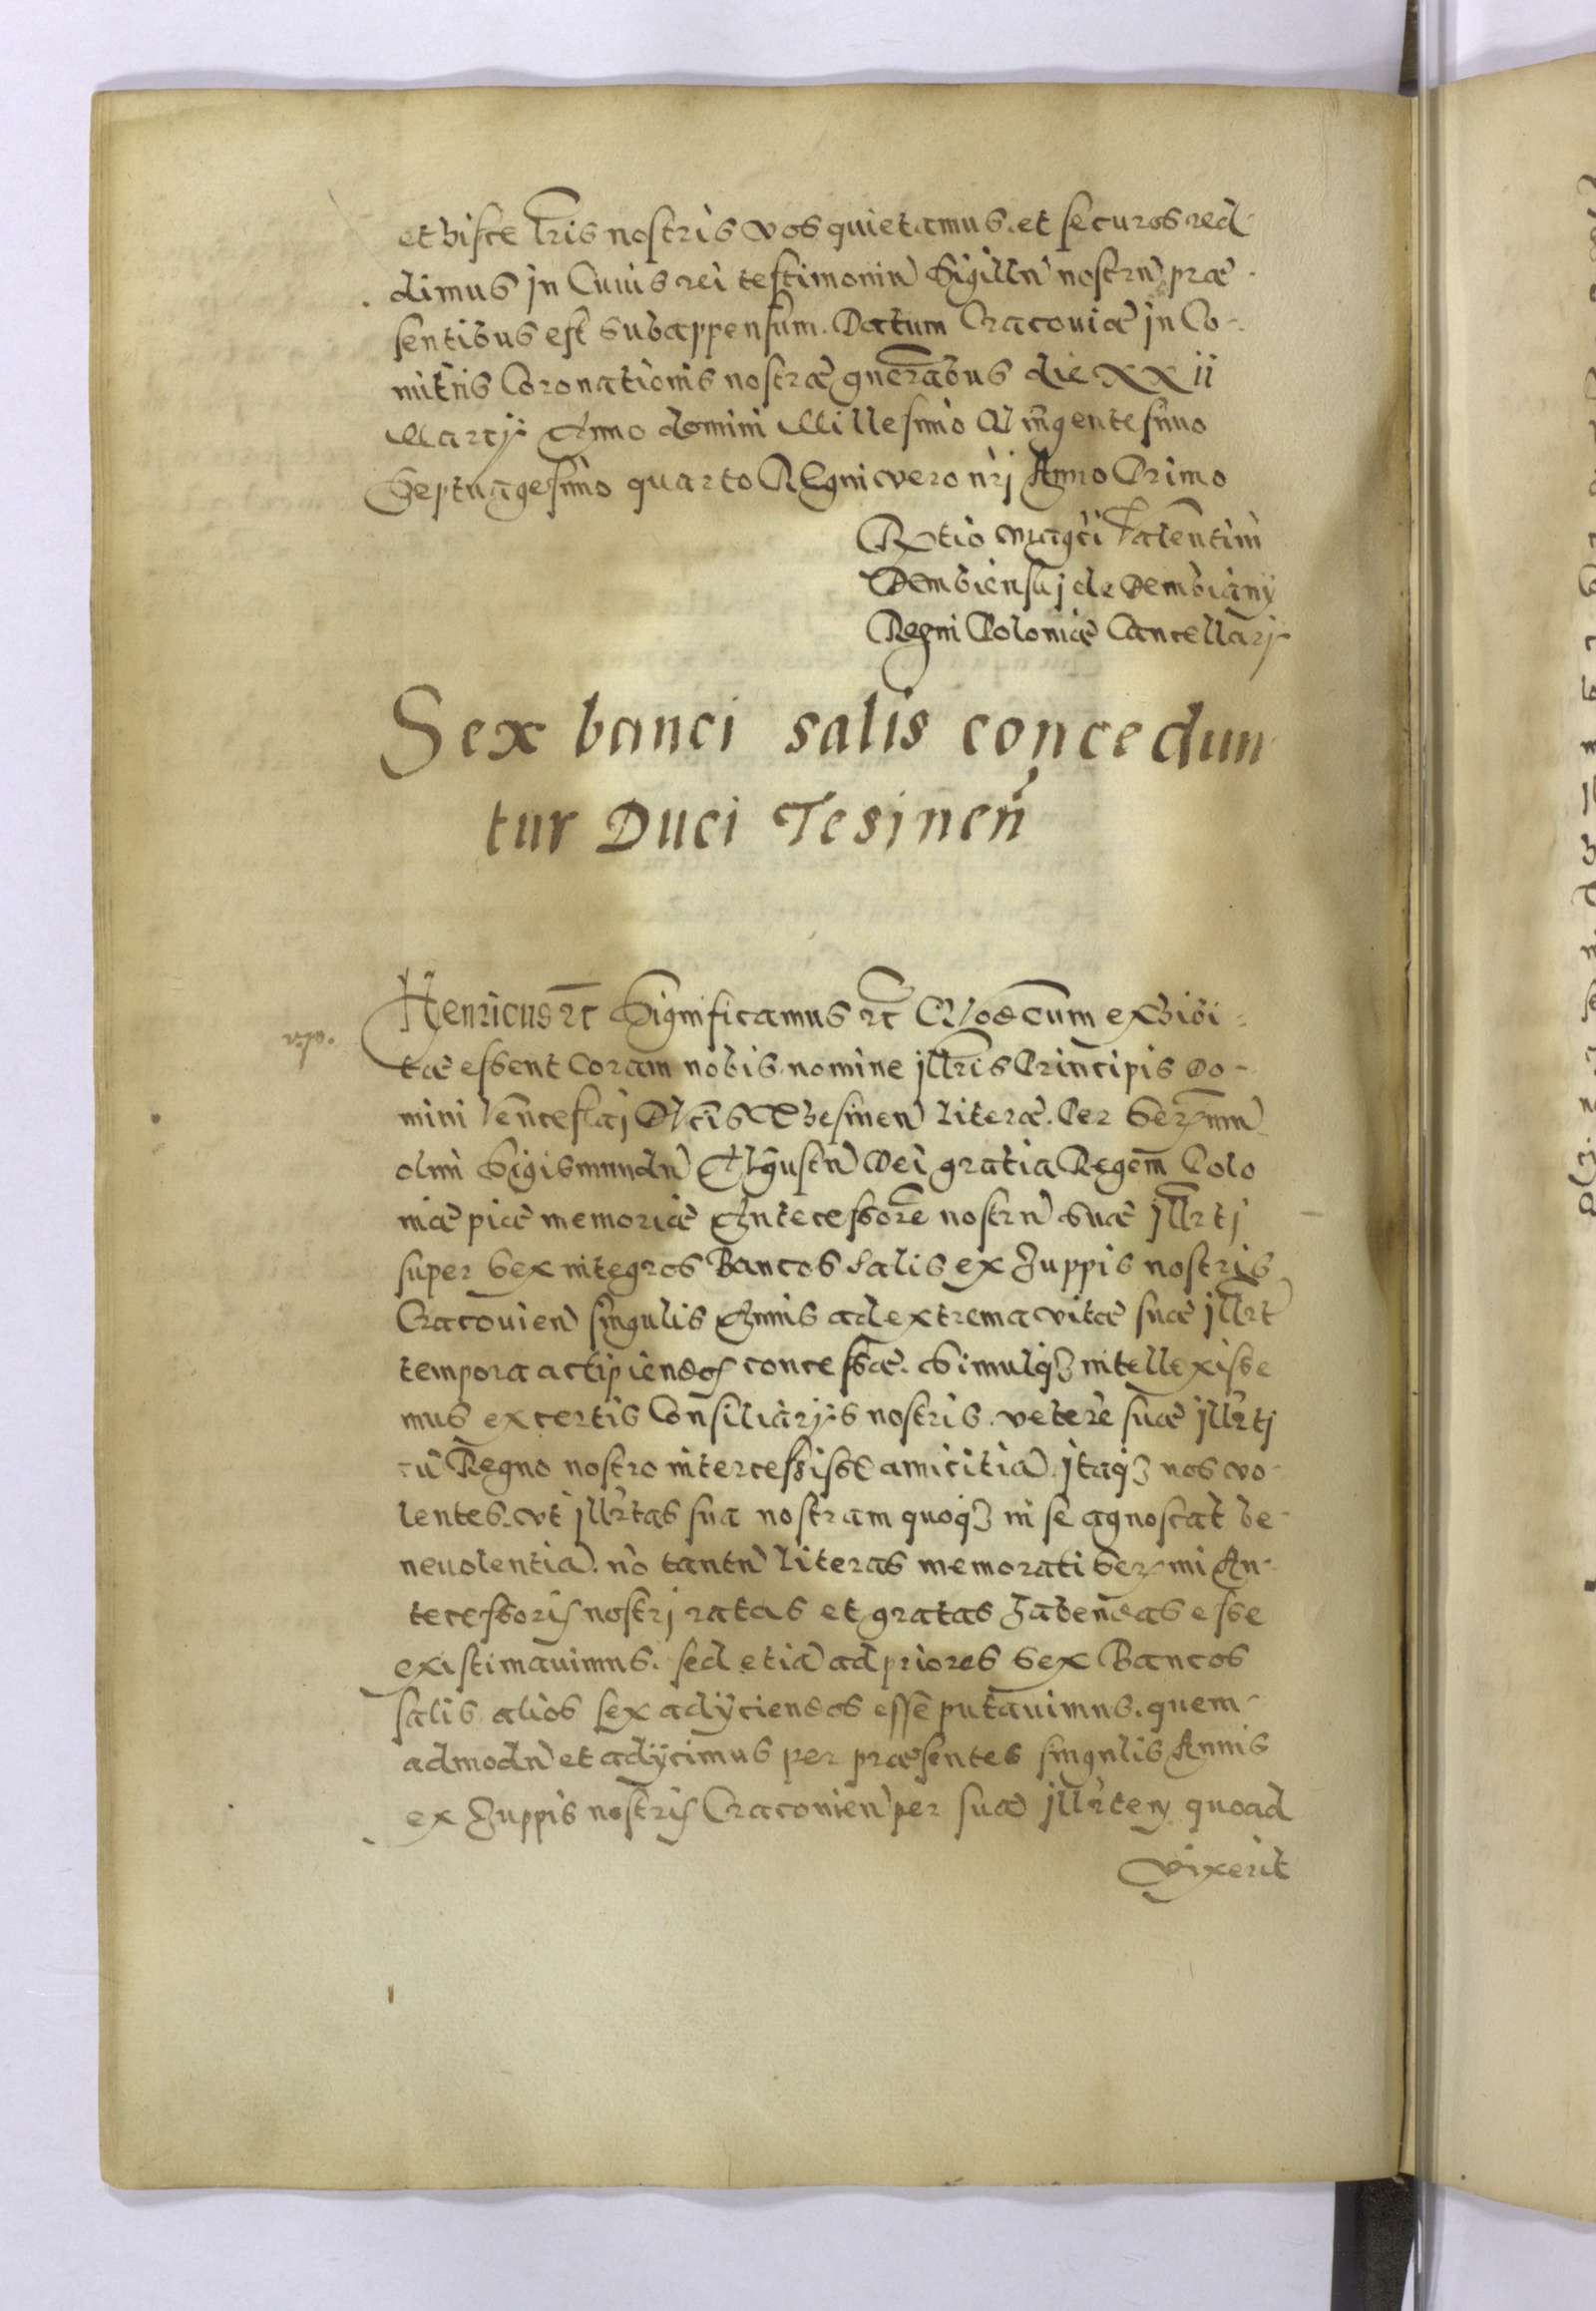 et hisce lr̃is nostris vos quietamus et securos red-
dimus in Cuius rei testimoniu̅ Sigillu̅ nostru̅ præ-
sentibus est subappensum. Datum Cracoviæ in Co-
mitiis Coronationis nostræ gneralibus die XXii
Martij Anno domini Millesimo Quingentesimo
Septuagesimo quarto Regni vero nr̃j Anno Primo
R̃tio magci Valentini
Dembienskj de Dembiany
Regni Poloniæ Cancellarij
Sex banci salis concedun
tur Duci Tesinen̄
Henricus etc̃ Significamus etc̃ Quod cum exhibi-
tæ essent coram nobis nomine jllr̃is Principis Do-
mini Venceslaj Ducis Thesinen̄ literæ. Per Serm̃um
olim Sigismundu̅ Augustu̅ Dei gratia Regem Polo
niæ piæ memoriæ Antecessorē nostru̅ suæ jllr̃tj
super Sex integros Bancos Salis ex Zuppis nostris
Cracovien̄ singulis Annis ad extrema vitæ suæ jllr̃t
tempora accipiendos concessæ. Simulq3 intellexisse
mus ex certis Consiliarijs nostris. veterē suæ jllr̃tj
cū Regno nostro intercessisse amicitiā. jtaq3 nos vo-
lentes. vt jllr̃tas sua nostram quoq3 in se agnoscat be-
nevolentiā. nō tantu̅ literas memorati Serm̃i An-
tecessoris nostrj ratas et gratas habendas esse
existimavimus. sed etiā ad priores Sex Bancos
salis alios sex adijciendos esse putavimus. quem-
admodu̅ et adijcimus per præsentes singulis Annis
ex Zuppis nostris Cracovien̄ per suā jllr̃tem quoad
vixerit